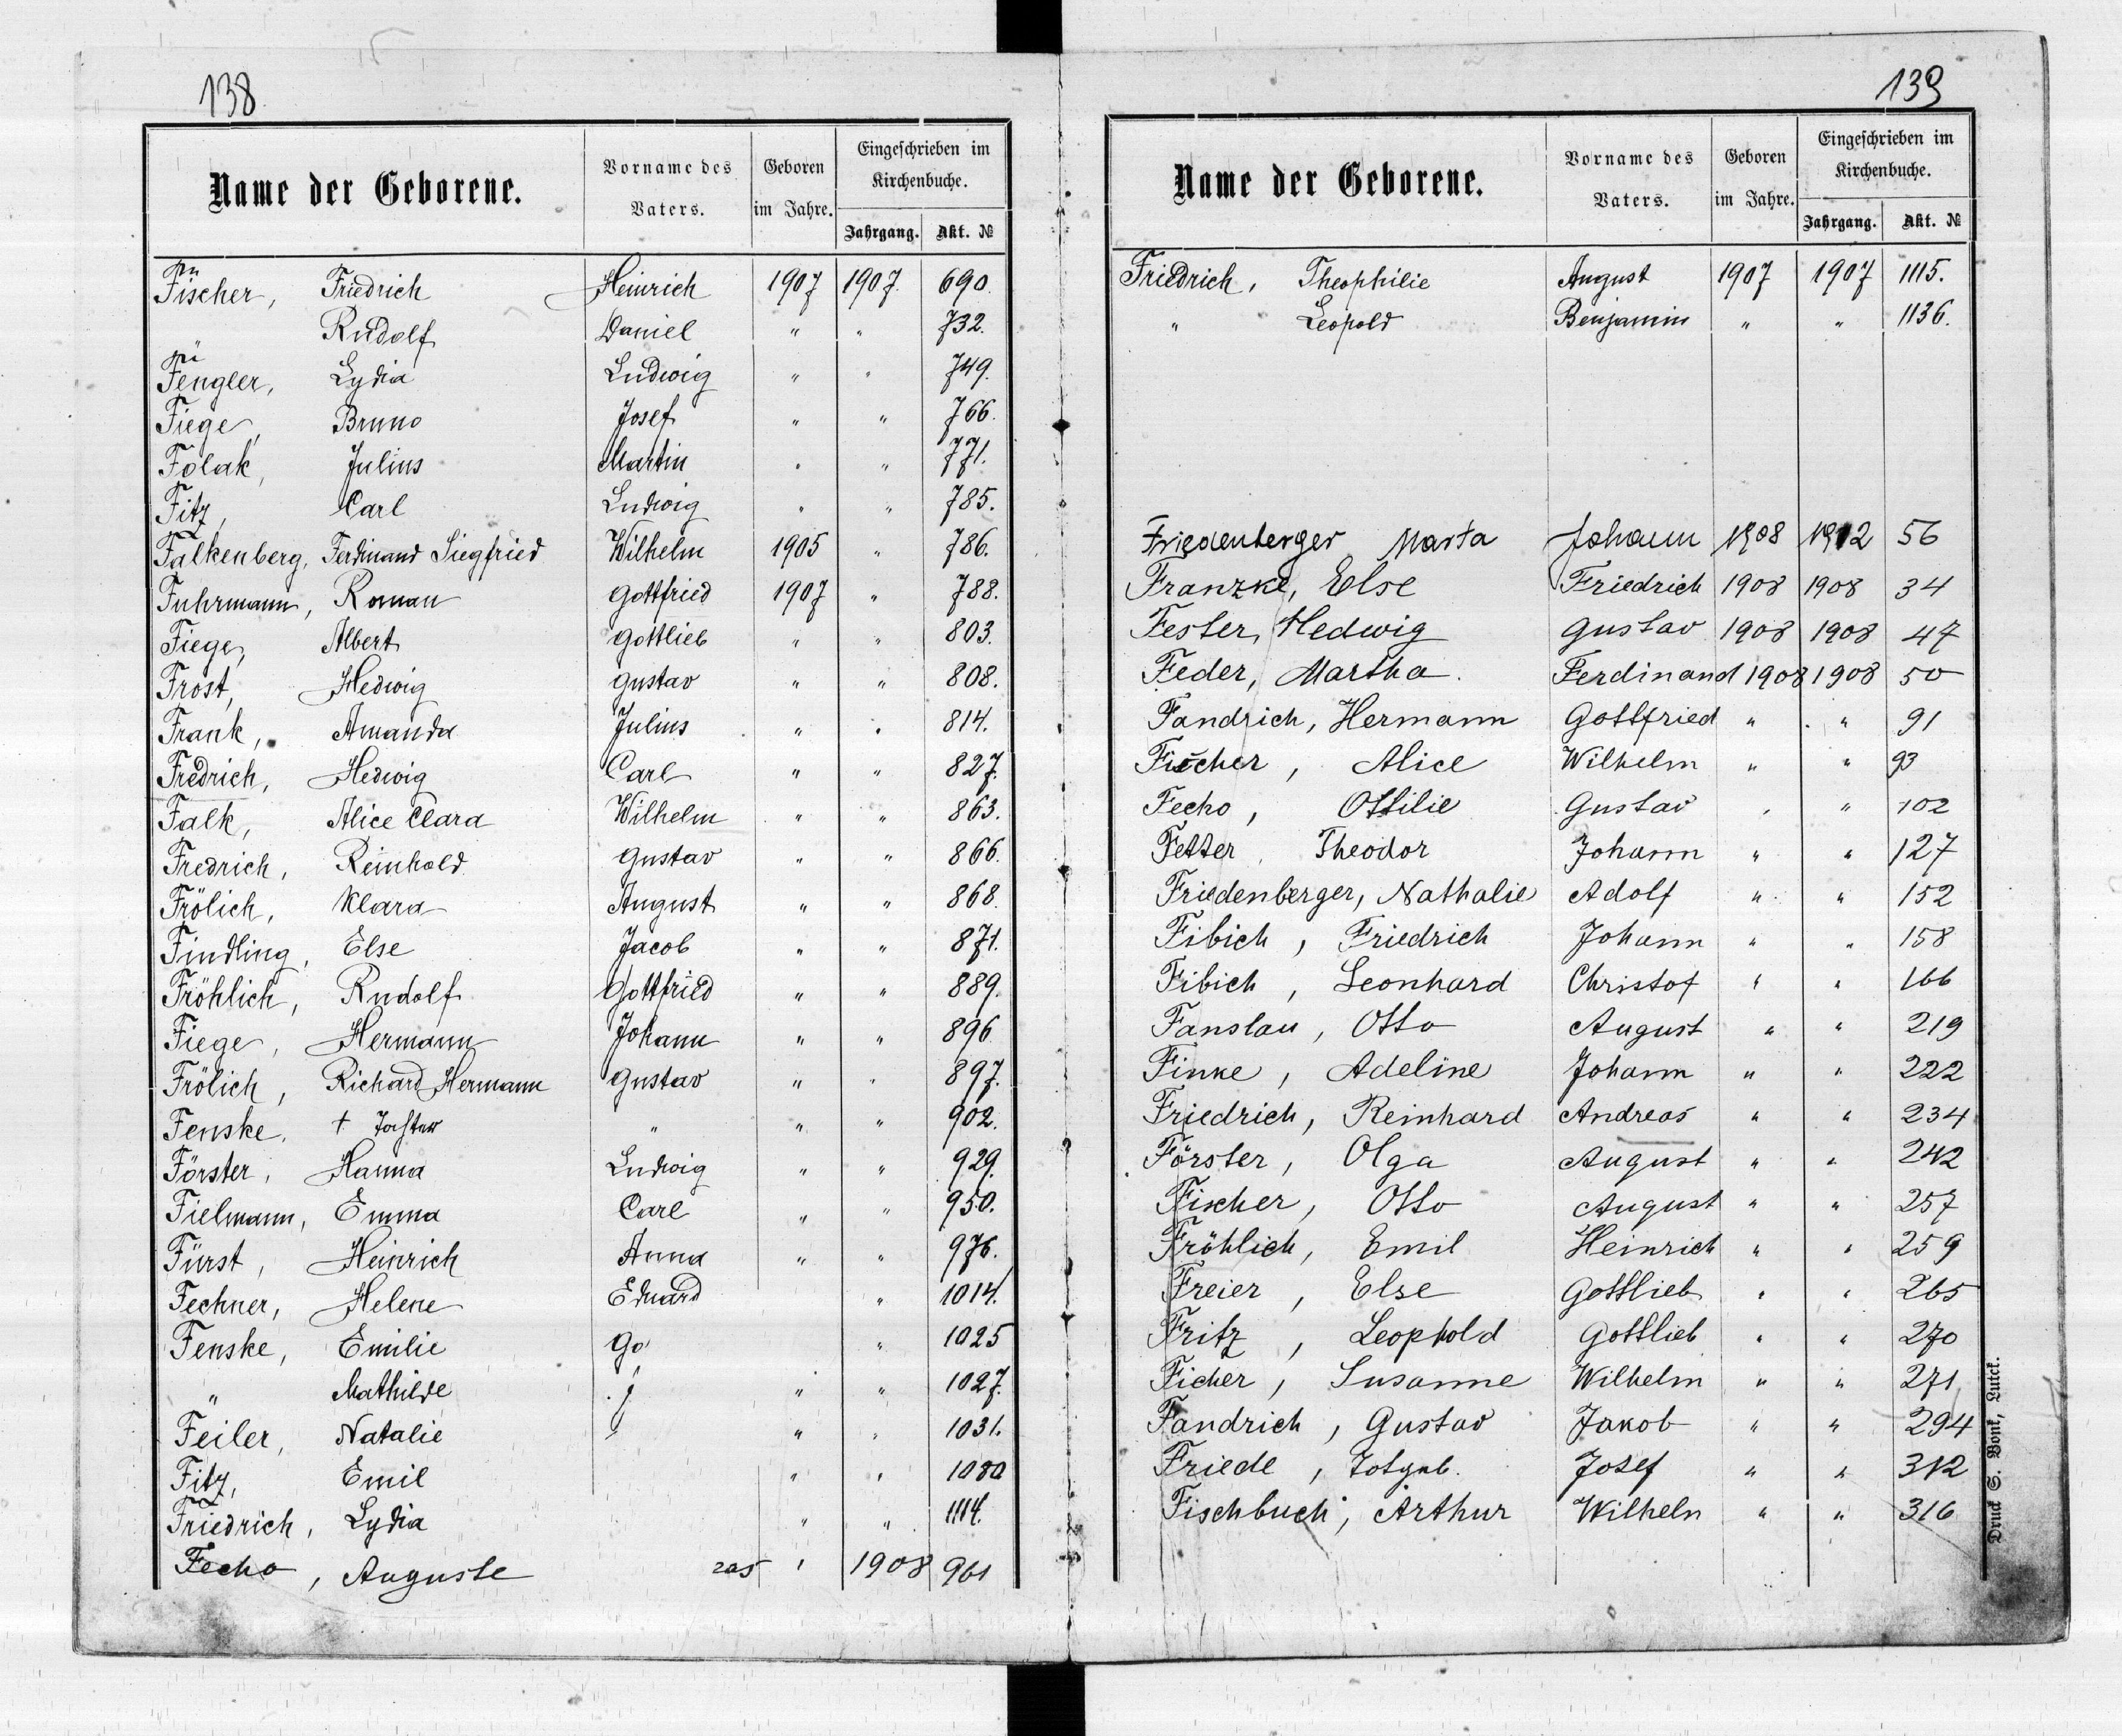 138
Name der Geborene. Vorname des Vaters. Geboren im Jahre. Eingeschrieben im Kirchenbuche. Jahrgang. Akt. №
Fischer, Friedrich Heinrich 1907 1907. 690.
Rudolf Daniel " " 732.
Fengler, Lydia Ludwig " " 749.
Fiege, Bruno Josef " " 766.
Folak, Julius Martin " " 771.
Fitz, Carl Ludwig " " 785.
Falkenberg, Ferdinand Siegfried Wilhelm 1905 " 786.
Fuhrmann, Roman Gottfried 1907 " 788.
Fiege, Albert Gottlieb " " 803.
Frost, Hedwig Gustav " " 808.
Frank, Amanda Julius " " 814.
Fredrich, Hedwig Carl " " 827.
Falk, Alice Clara Wilhelm " " 863.
Fredrich, Reinhold Gustav " " 866.
Frölich, Klara August " " 868.
Findling, Else Jacob " " 871.
Fröhlich, Rudolf Gottfried " " 889.
Fiege, Hermann Johann " " 896
Frölich, Richard Hermann Gustav " " 897.
Fenske, † " " " 902.
Förster, Hanna Ludwig " " 929.
Fielmann, Emma Carl " " 950.
Fürst, Heinrich Anna " " 976.
Fechner, Helene Eduard " 1014.
Fenske, Emilie Go " 1025
" Mathilde " " 1027.
Feiler, Natalie " " 1031.
Fitz, Emil " " 1080
Friedrich, Lydia " " 1114.
Fecho, Auguste " 1908 961
139
Name der Geborene. Vorname des Vaters. Geboren im Jahre. Eingeschrieben im Kirchenbuche. Jahrgang. Akt. №
Friedrich, Theophilie August 1907 1907 1115.
" Leopold Benjamin " " 1136.
Friedenberger Marta Johann 1908 1912 56
Franzke, Else Friedrich 1908 1908 34
Fester, Hedwig Gustav 1908 1908 47
Feder, Martha. Ferdinand 1908 1908 50
Fandrich, Hermann Gottfried " " 91
Fischer, Alice Wilhelm " " 93
Fecho, Ottilie Gustav " " 102
Fetter, Theodor Johann " " 127
Friedenberger, Nathalie Adolf " " 152
Fibich, Friedrich Johann " " 158
Fibich, Leonhard Christof " " 166
Fanslau, Otto August " " 219
Finke, Adeline Johann " " 222
Friedrich, Reinhard Andreas " " 234
Förster, Olga August " " 242
Fischer, Otto August " " 257
Fröhlich, Emil Heinrich " " 259
Freier, Else Gottlieb " " 265
Fritz, Leophold Gottlieb " " 270
Ficher, Susanne Wilhelm " " 271
Fandrich, Gustav Jakob " " 294
Friede, Totgeb. Josef " " 312
Fischbuch, Arthur Wilhelm " " 316
Druck S. Bonk, Luck.